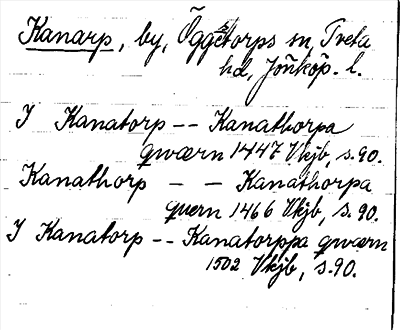 Kanarp, by, Öggestorps sn, Tveta
hd, Jönköp. l.
I Kanatorp -- Kanathorpa
qwærn 1447 Vkjb, s. 90.
Kanathorp - - Kanathorpa
quern 1466 Vkjb, s. 90.
I Kanatorp -- Kanatorppa qwærn
1502 Vkjb, s. 90.